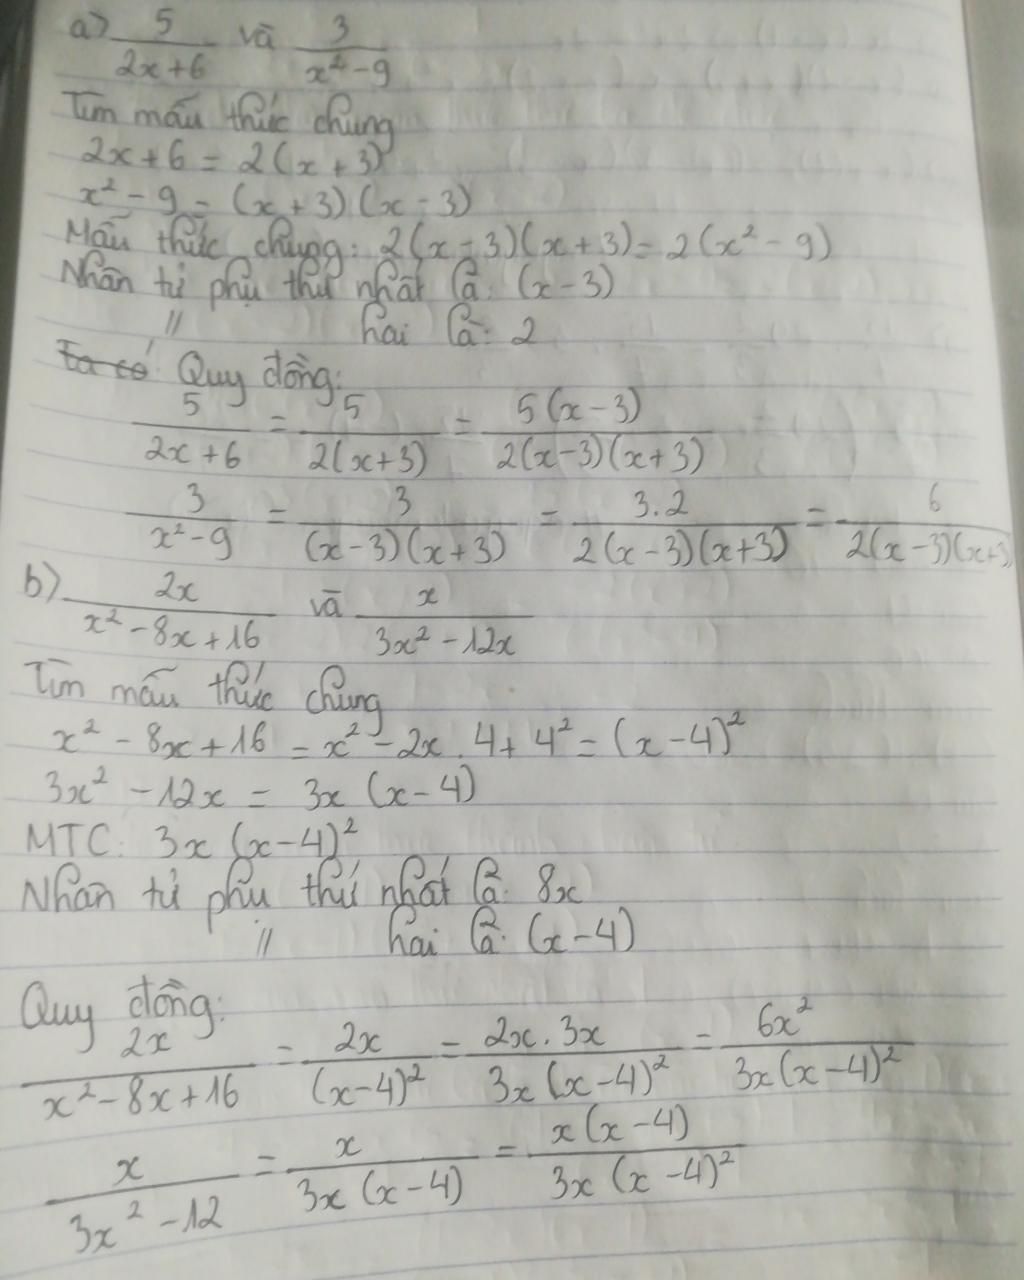 a) 5/(2x+6) và 3/(x²-9)
Tìm mẫu thức chung
2x+6 = 2(x+3)
x²-9 = (x+3)(x-3)
Mẫu thức chung: 2(x-3)(x+3) = 2(x²-9)
Nhân tử phụ thứ nhất là: (x-3)
〃 hai là: 2
Ta có Quy đồng:
5/(2x+6) = 5/(2(x+3)) = 5(x-3)/(2(x-3)(x+3))
3/(x²-9) = 3/((x-3)(x+3)) = 3.2/(2(x-3)(x+3)) = 6/(2(x-3)(x+3)
b) 2x/(x²-8x+16) và x/(3x²-12x)
Tìm mẫu thức chung
x²-8x+16 = x²-2x.4+4² = (x-4)²
3x²-12x = 3x(x-4)
MTC: 3x(x-4)²
Nhân tử phụ thứ nhất là: 8x
〃 hai là: (x-4)
Quy đồng:
2x/(x²-8x+16) = 2x/(x-4)² = 2x.3x/(3x(x-4)²) = 6x²/(3x(x-4)²)
x/(3x²-12) = x/(3x(x-4)) = x(x-4)/(3x(x-4)²)